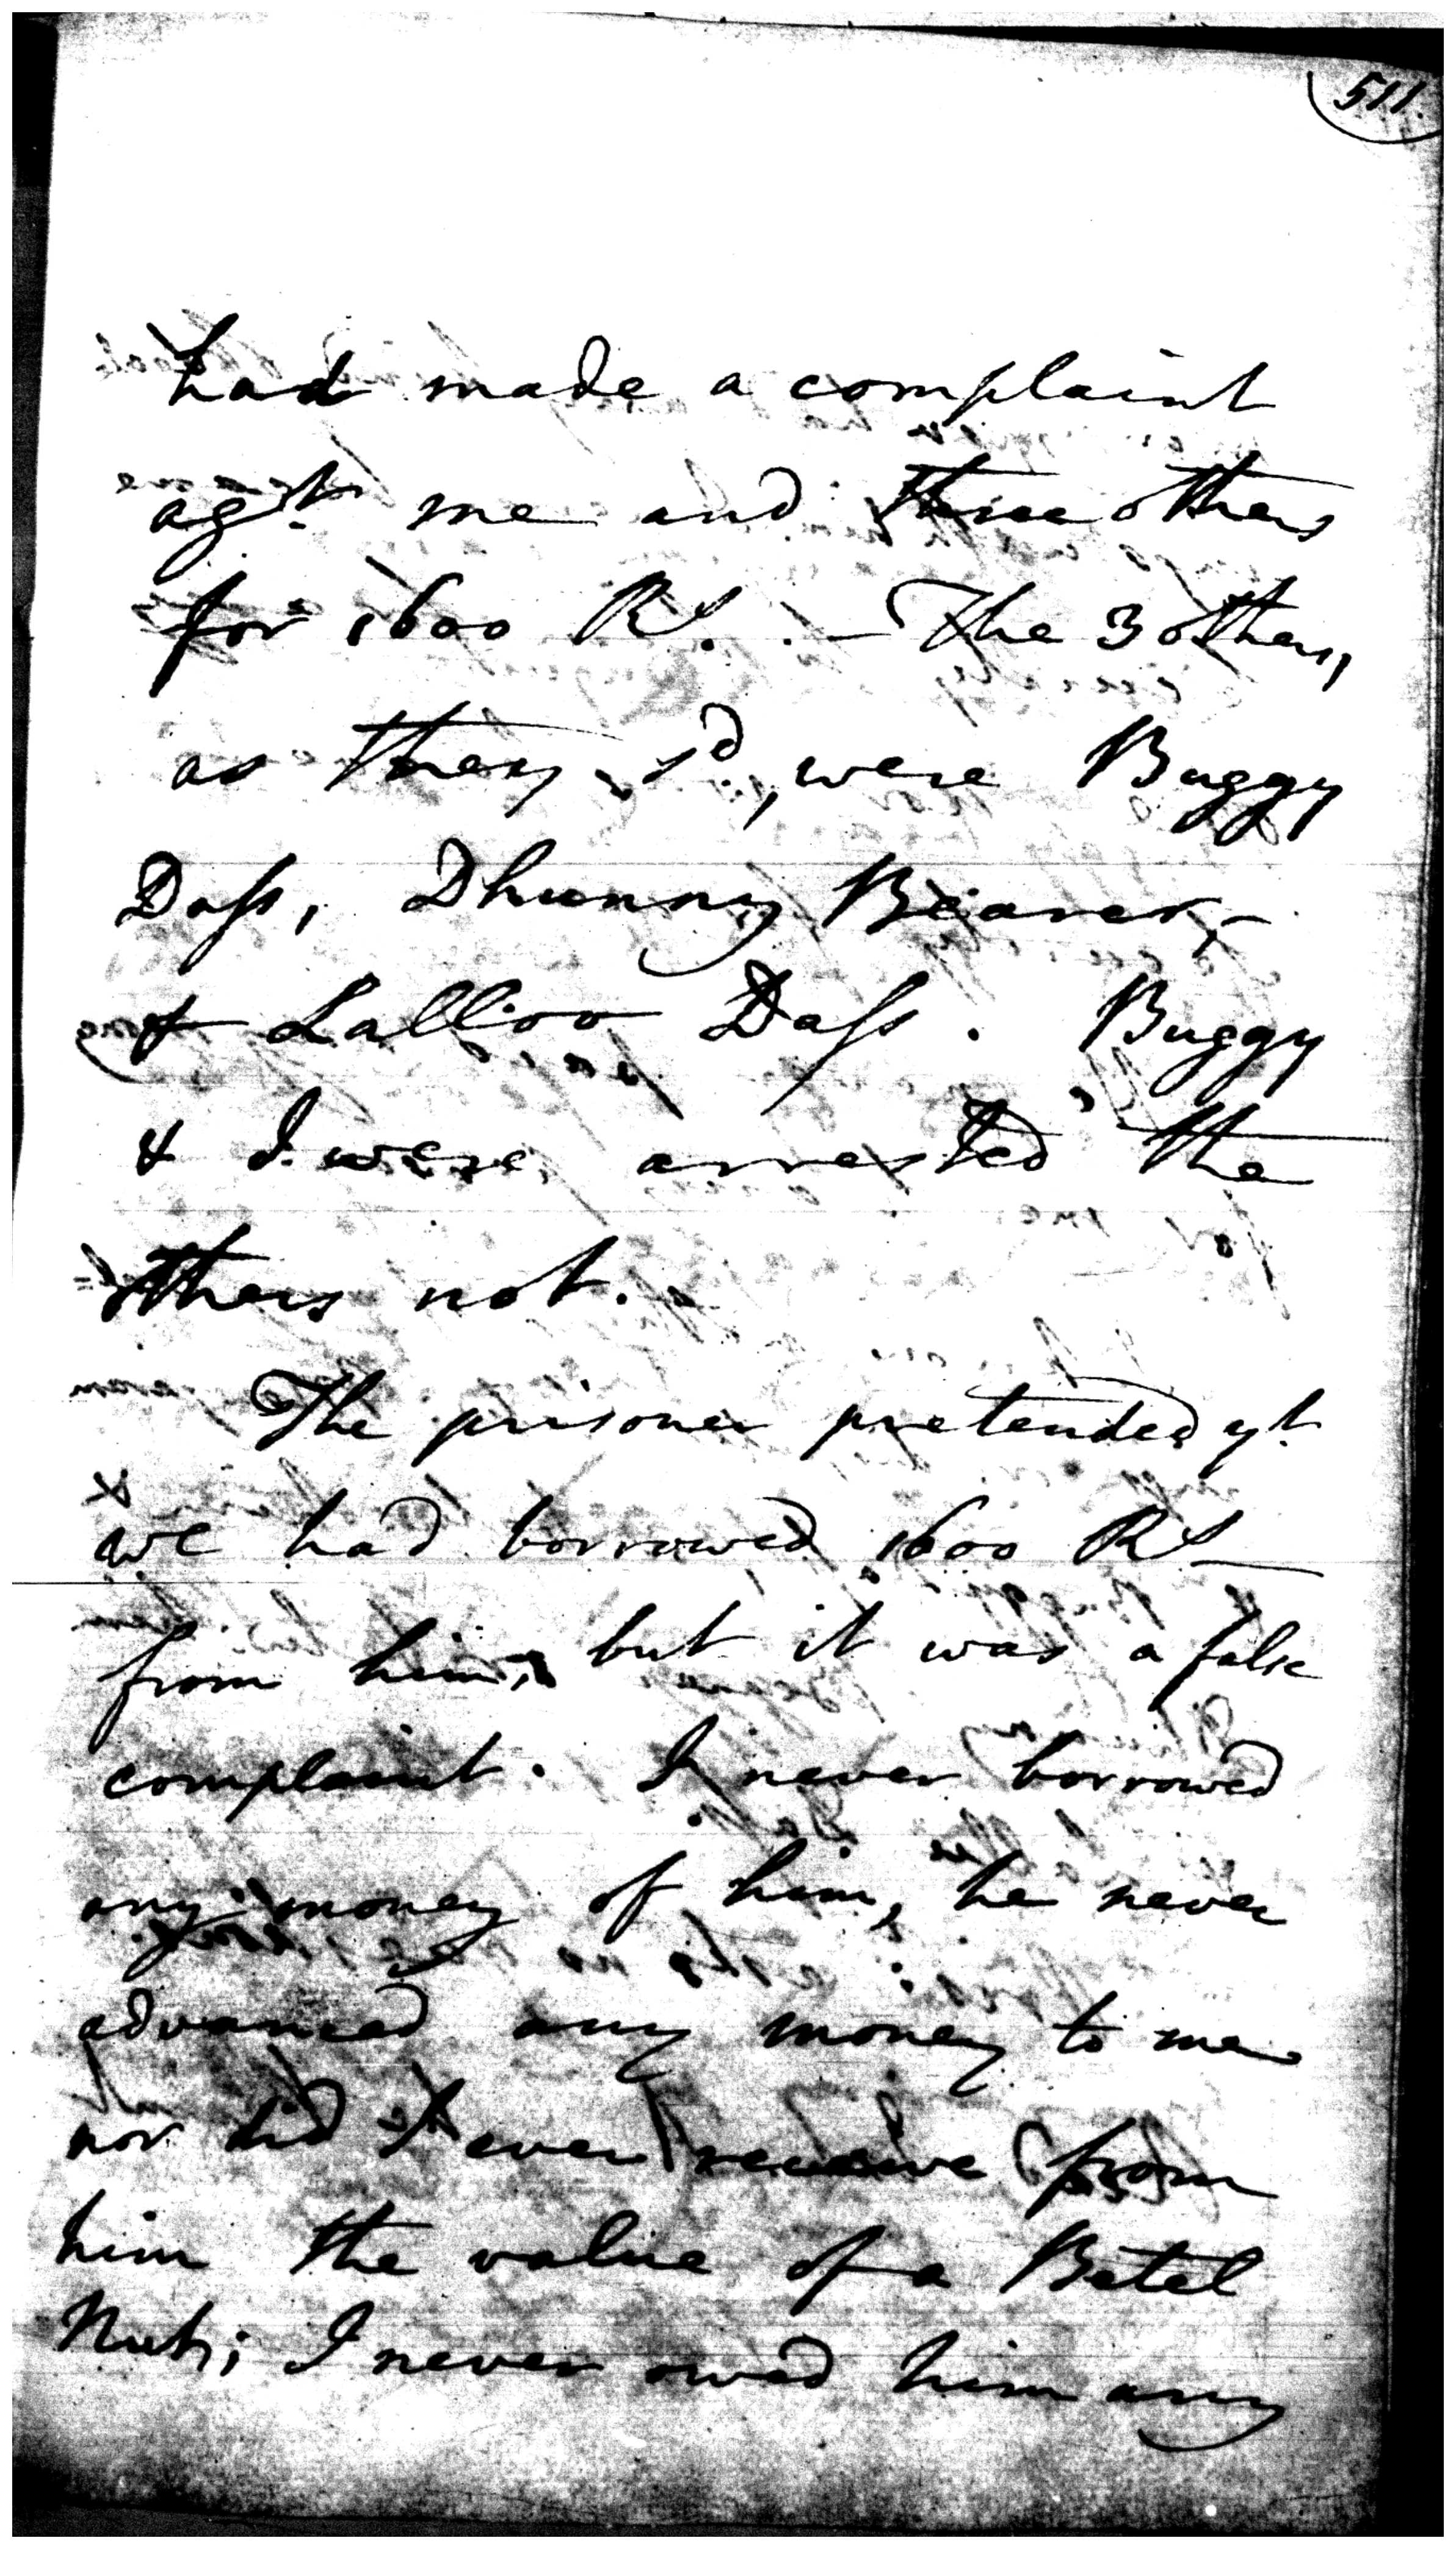 511.
had made a complaint
agt. me and three others
for 1600 Rs. - The 3 others,
as they sd, were Buggy
Dass, Dhunny Bearer,-
& Lalloo Dass. Buggy
& I were arrested the
others not.
The prisoner pretended yt.
we had borrowed 1600 Rs
from him, but it was a false
complaint. I never borrowed
any money of him, he never
advanced any money to me
nor did I ever receive from
him the value of a Betel
Nut; I never owed him any